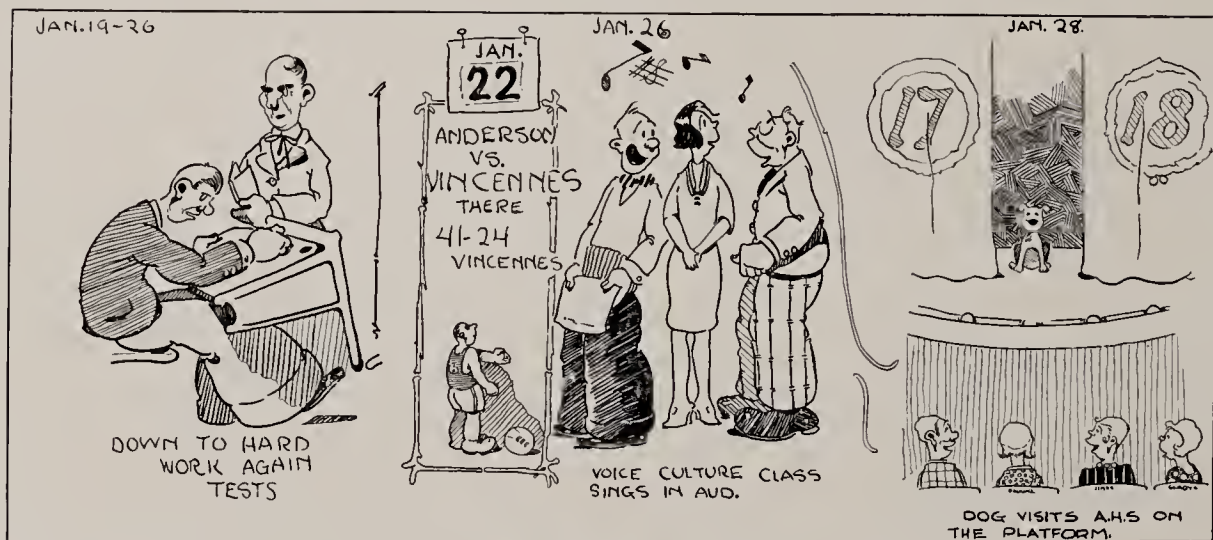 JAN. 19-26
DOWN TO HARD
WORK AGAIN
TESTS
JAN.
22
ANDERSON
VS.
VINCENNES
THERE
41-24
VINCENNES
JAN. 26
VOICE CULTURE CLASS
SINGS IN AUD.
JAN. 28.
17
18
DOG VISITS A.H.S ON
THE PLATFORM.